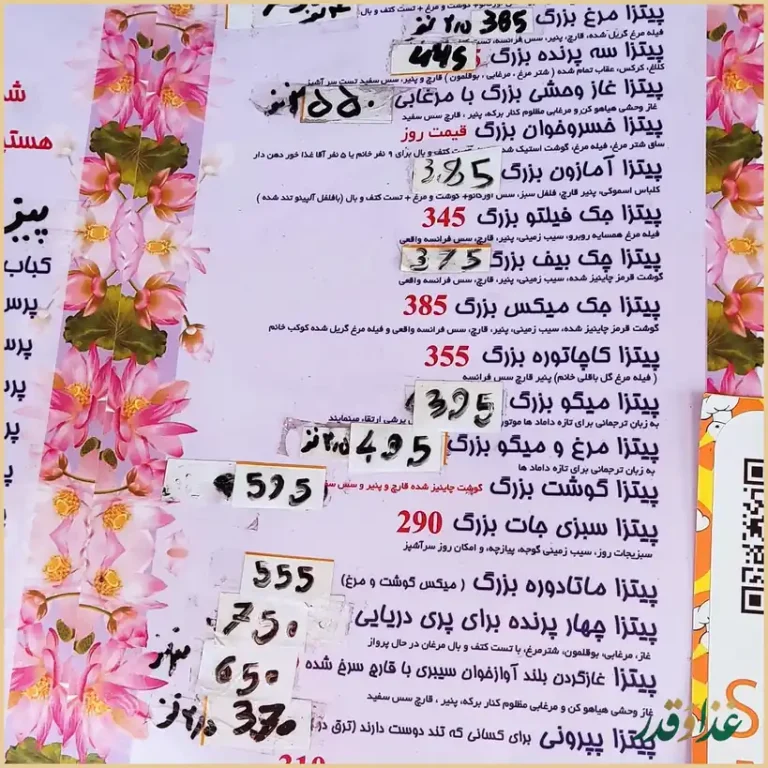 پیتزا مرغ بزرگ 385 ۲/۵ نفر
فیله مرغ گریل شده، قارچ، پنیر، سس فرانسه، تست کتف و بال
پیتزا سه پرنده بزرگ 445
کلاغ، کرکس، عقاب تمام شده ( شتر مرغ ، مرغابی ، بوقلمون ) قارچ و پنیر، سس سفید تست سر آشپز
پیتزا غاز وحشی بزرگ با مرغابی ۵۵۰
غاز وحشی هیاهو کن و مرغابی مظلوم کنار برکه، پنیر ، قارچ سس سفید
پیتزا خسروخوان بزرگ قیمت روز
سای شتر مرغ، فیله مرغ، گوشت استیک شده کتف و بال برای ۹ نفر خانم یا ۵ نفر آقا غذا خور دهن دار
پیتزا آمازون بزرگ 385
کلباس اسموکی، پنیر قارچ، فلفل سبز، سس اورگانو+ گوشت و مرغ + تست کتف و بال (بافلفل آلپینو تند شده )
پیتزا جک فیلتو بزرگ 345
فیله مرغ همسایه روبرو، سیب زمینی، پنیر، قارچ، سس فرانسه واقعی
پیتزا چک بیف بزرگ 375
گوشت قرمز چاینیز شده، سیب زمینی، پنیر، قارچ، سس فرانسه واقعی
پیتزا جک میکس بزرگ 385
گوشت قرمز چاینیز شده، سیب زمینی، پنیر، قارچ، سس فرانسه واقعی و فیله مرغ گریل شده کوکب خانم
پیتزا کاچاتوره بزرگ 355
( فیله مرغ گل باقلی خانم) پنیر قارچ سس فرانسه
پیتزا میگو بزرگ 395
به زبان ترجمانی برای تازه داماد ها موتور پرشی ارتقاء مینمایند
پیتزا مرغ و میگو بزرگ 495 ۲/۵ نفر
به زبان ترجمانی برای تازه داماد ها
پیتزا گوشت بزرگ گوشت چاینیز شده قارچ و پنیر و سس 595
پیتزا سبزی جات بزرگ 290
سبزیجات روز، سیب زمینی گوجه، پیازچه، و امکان روز سرآشپز
پیتزا ماتادوره بزرگ ( میکس گوشت و مرغ) 555
پیتزا چهار پرنده برای پری دریایی 750
غاز، مرغابی، بوقلمون، شترمرغ، با تست کتف و بال مرغان در حال پرواز
پیتزا غازگردن بلند آوازخوان سیبری با قارچ سرخ شده 650
غاز وحشی هیاهو کن و مرغابی مظلوم کنار برکه، پنیر ، قارچ سس سفید
پیتزا پپرونی برای کسانی که تند دوست دارند 370 ۲/۵ نفر
310
هستی
پیز
کباب
پرس
پرس
غذا و قدر